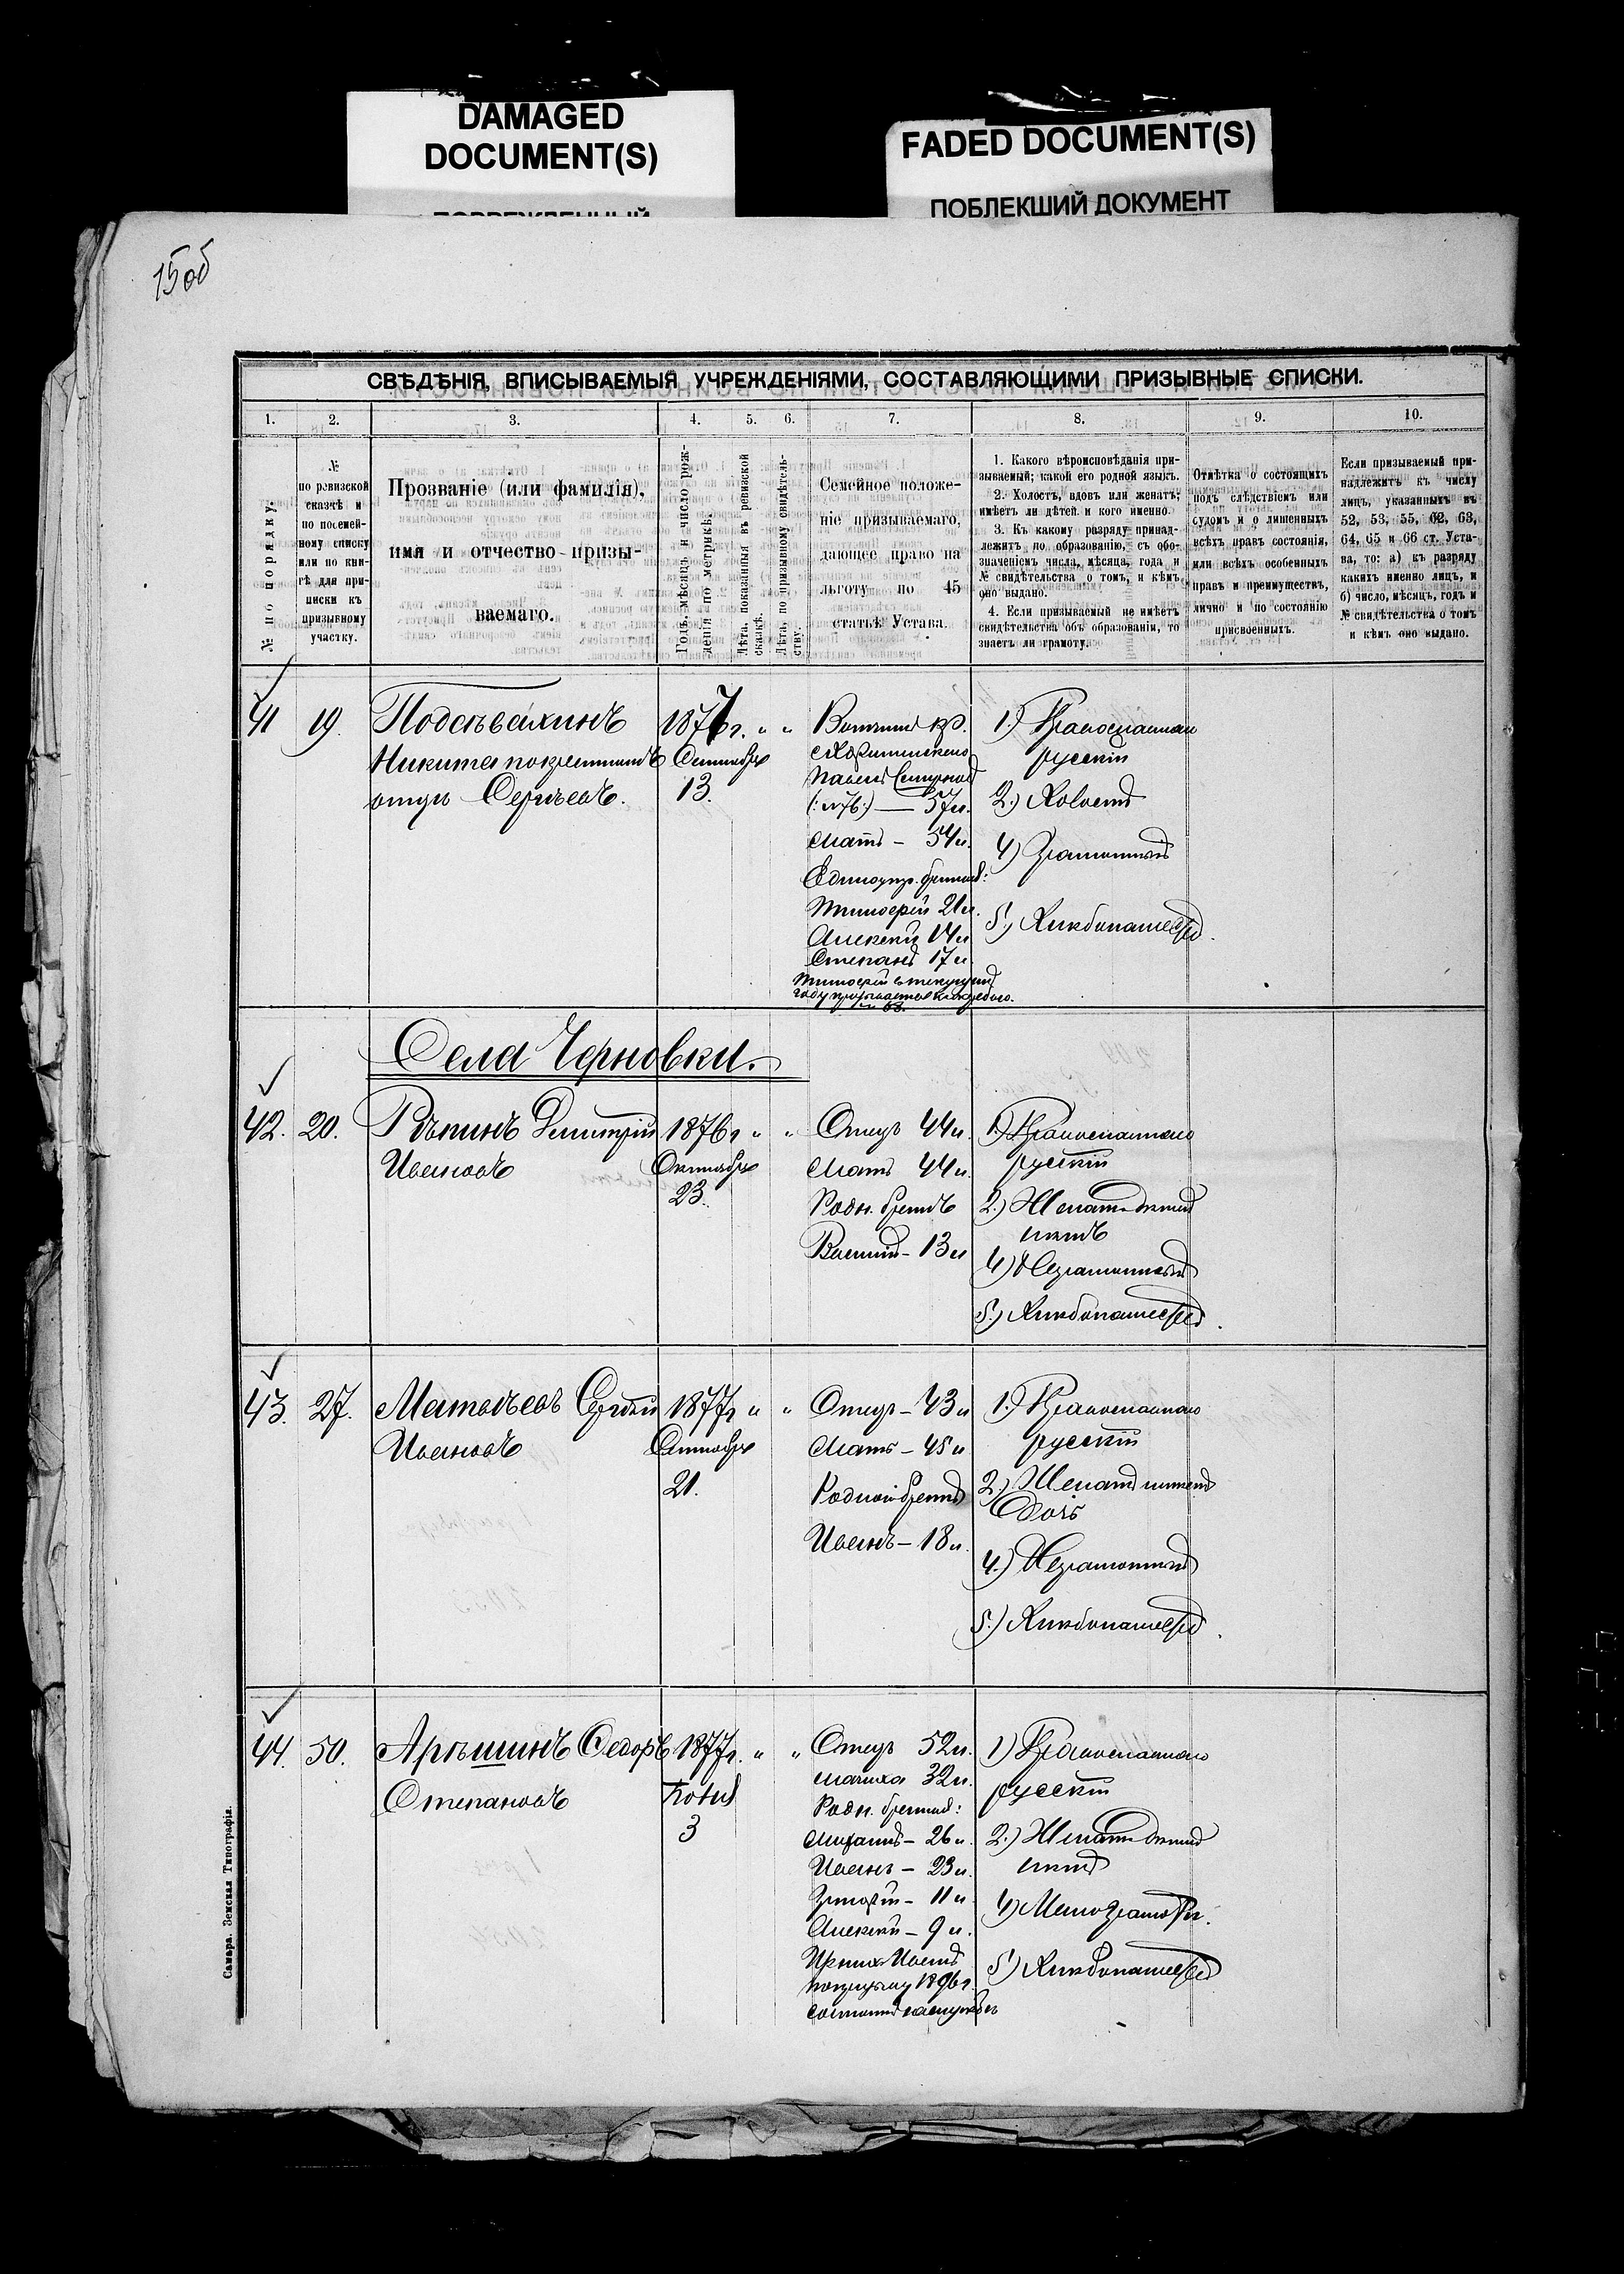 DAMAGED
DOCUMENT(S)
FADED DOCUMENT(S)
ПОБЛЕКШИЙ ДОКУМЕНТ
15об
СВѢДѢНІЯ, ВПИСЫВАЕМЫЯ УЧРЕЖДЕНІЯМИ, СОСТАВЛЯЮЩИМИ ПРИЗЫВНЫЕ СПИСКИ.
1. 2. 3. 4. 5. 6. 7. 8. 9. 10.
№ по порядку.
№
по ревизской
сказкѣ и
по посемей-
ному списку
или по кни-
гѣ для при-
писки къ
призывному
участку.
Прозваніе (или фамилія),
имя и отчество призы-
ваемаго.
Годъ, мѣсяцъ и число рож-
денія по метрикѣ.
Лѣта, показанныя въ ревизской
сказкѣ.
Лѣта, по призывному свидѣтель-
ству.
Семейное положе-
ніе призываемаго,
дающее право на
льготу по 45
статьѣ Устава.
1. Какого вѣроисповѣданія при-
зываемый; какой его родной языкъ.
2. Холостъ, вдовъ или женатъ;
имѣетъ ли дѣтей и кого именно.
3. Къ какому разряду принад-
лежитъ по образованію, съ обо-
значеніемъ числа, мѣсяца, года и
№ свидѣтельства о томъ, и кѣмъ
оно выдано.
4. Если призываемый не имѣетъ
свидѣтельства объ образованіи, то
знаетъ ли грамоту.
Отмѣтка о состоящихъ
подъ слѣдствіемъ или
судомъ и о лишенныхъ
всѣхъ правъ состоянія,
или всѣхъ особенныхъ
правъ и преимуществъ,
лично и по состоянію
присвоенныхъ.
Если призываемый при-
надлежитъ къ числу
лицъ, указанныхъ въ
52, 53, 55, 62, 63,
64, 65 и 66 ст. Уста-
ва, то: а) къ разряду
какихъ именно лицъ, и
б) число, мѣсяцъ, годъ и
№ свидѣтельства о томъ
и кѣмъ оно выдано.
41 19.
Никита по крестному
отцу Сергѣевъ.
1877 г. " "
Сентября
13.
Павелъ
(:№76:) — 57 л.
Мать — 54 л.
Единоутр. братья:
Тимофей 21 л.
Алексѣй 14 л.
Степанъ 17 л.
Тимофей въ текущемъ
1.) Православнаго
русскій
2.) Холостъ
4.) Грамотный
5.) Хлѣбопашецъ.
Села Черновки.
42. 20.
Рѣпинъ Димитрій
Ивановъ
1876 г " "
Октября
23.
Отецъ 44 л.
Мать 44 л.
Родн. братъ
Василій — 13 л
1.) Православнаго
русскій
2.) Женатъ дѣтей
нѣтъ
4.) Неграмотный
5.) Хлѣбопашецъ.
43. 27.
Матвѣевъ Сергѣй
Ивановъ
1877 г " "
21.
Отецъ — 43 л
Мать — 45 л
Родной братъ
Иванъ — 18 л.
1.) Православнаго
русскій
2.) Женатъ имѣетъ
дочь
4.) Неграмотный
5.) Хлѣбопашецъ.
44. 50.
Арѣшинъ Ѳедоръ
Степановъ
1877 г. " "
3
Отецъ 52 л.
Мачиха 32 л.
Родн. братья:
Михаилъ — 26 л.
Иванъ — 23 л.
Григорій — 11 л.
Алексѣй — 9 л.
Иванъ
по призыву 1896 г.
состоитъ на службѣ
1) Православнаго
русскій
2.) Женатъ дѣтей
нѣтъ
4) Малограмотн.
5) Хлѣбопашецъ
Самара. Земская Типографія.